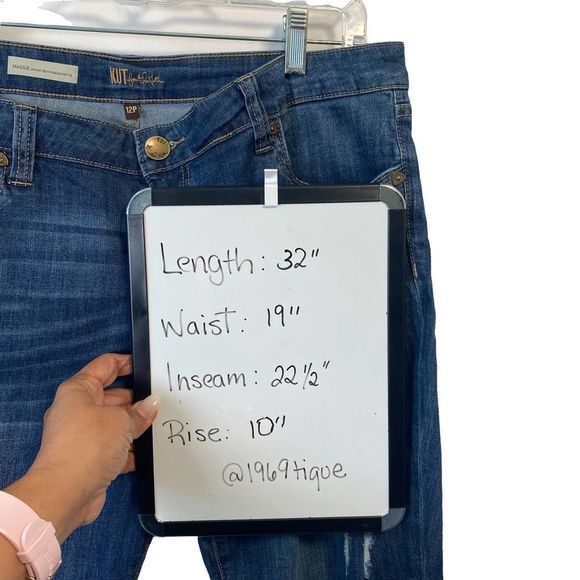 MAGGIE
KUT from the Kloth
12P
Length: 32"
Waist: 19"
Inseam: 22 1/2"
Rise: 10"
@1969tique